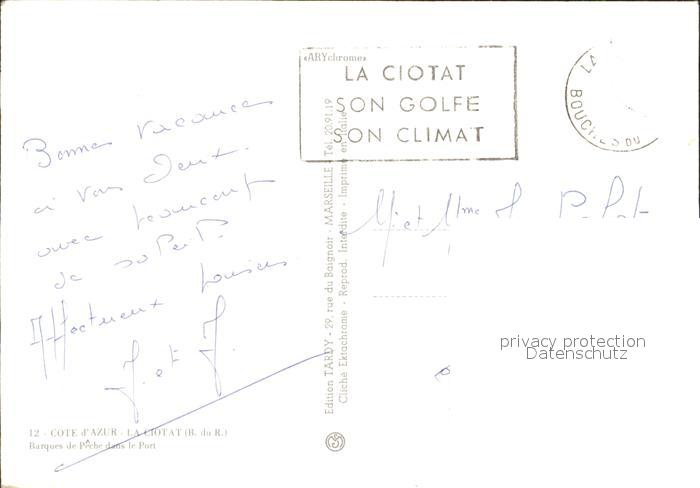 «ARYchrome»
LA CIOTAT
SON GOLFE
SON CLIMAT
LA
BOUCHES DU
Bonnes vacances
à vous deux.
avec beaucoup
de soleil.
Affectueux baisers
J. et J.
12 - COTE d'AZUR - LA CIOTAT (B. du R.)
Barques de Pêche dans le Port
Edition TARDY - 29, rue du Baignoir - MARSEILLE - Tél. 20.91.19
Cliché Ektachrome - Reprod. Interdite - Imprimé en Italie
M. et Mme
privacy protection
Datenschutz